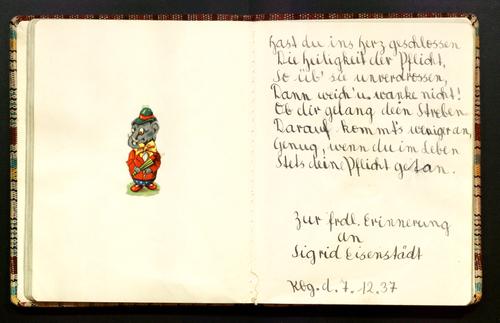 Hast du ins Herz geschlossen
Die Heiligkeit der Pflicht,
So üb' sie unverdrossen,
Dann weich' u. wanke nicht!
Ob dir gelang dein Streben
Darauf kommt's weniger an,
Genug, wenn du im Leben
Stets deine Pflicht getan.
Zur frdl. Erinnerung
an
Sigrid Eisenstädt
Kbg. d. 7. 12. 37